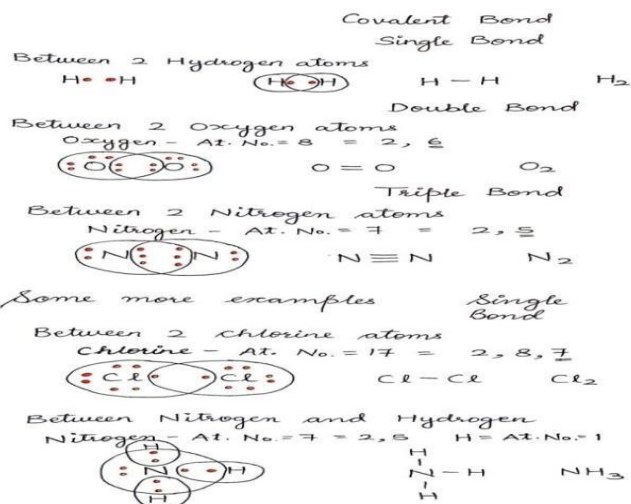 Covalent Bond
Single Bond
Between 2 Hydrogen atoms
H H H H H – H H2
Double Bond
Between 2 Oxygen atoms
Oxygen – At. No. = 8 = 2, 6
O O O = O O2
Triple Bond
Between 2 Nitrogen atoms
Nitrogen – At. No. = 7 = 2, 5
N N N ≡ N N2
Some more examples Single
Bond
Between 2 chlorine atoms
Chlorine – At. No. = 17 = 2, 8, 7
Cl Cl Cl – Cl Cl2
Between Nitrogen and Hydrogen
Nitrogen – At. No. = 7 = 2, 5 H = At. No. = 1
H H
N H N – H NH3
H H